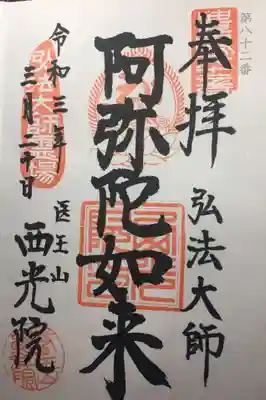 第八十二番
奉拝
弘法大師
阿弥陀如来
医王山
西光院
令和三年
三月二十日
弘法大師霊場